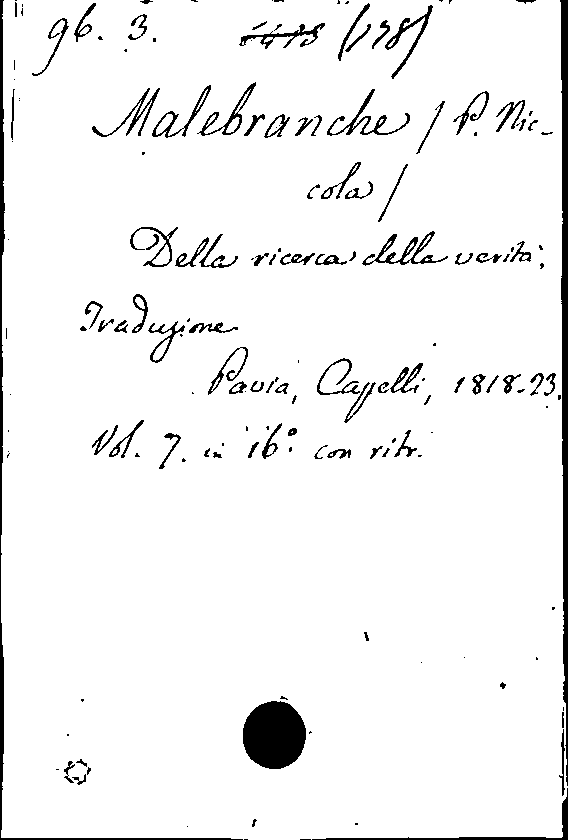 96. 3. (138)
Malebranche / P. Nic-
cola /
Della ricerca della verità;
Traduzione
Pavia, Capelli, 1818-23.
Vol. 7. in 16.° con ritr.